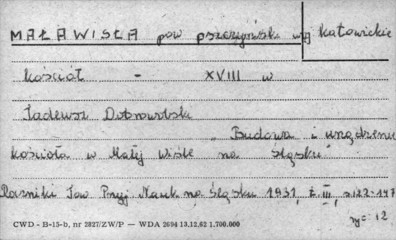 MAŁA WISŁA pow pszczyński woj katowickie
kościół - XVIII w
Tadeusz Dobrowolski
"Budowa i urządzenie
kościoła w Małej Wiśle na Śląsku"
Roczniki Tow Przyj Nauk na Śląsku 1931, t. III, s. 122-147
ryc = 12
CWD - B-15-b, nr 2827/ZW/P — WDA 2694 13.12.62 1.700.000